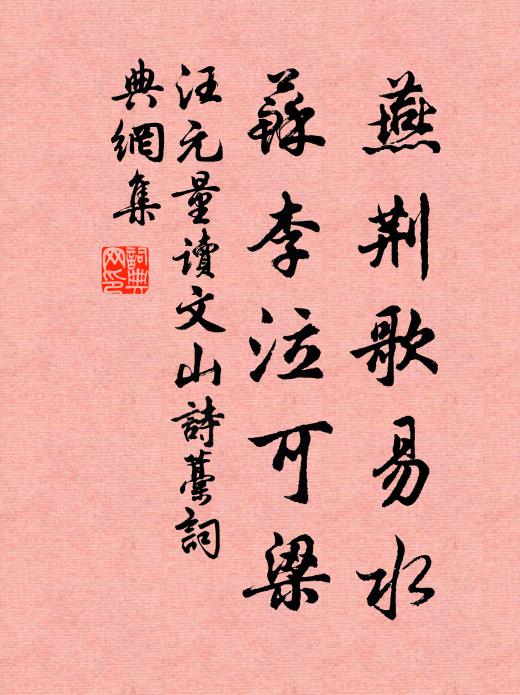 燕荆歌易水
蘇李泣可梁
汪元量讀文山詩藁詞
典網集
詞典
网印